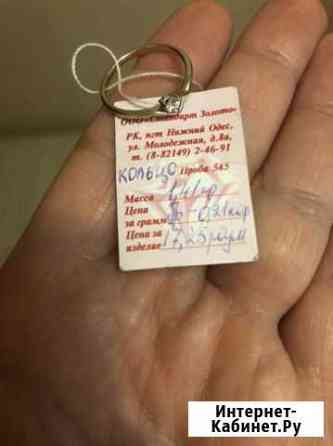 ООО «Стандарт Золото»
РК, пгт Нижний Одес,
ул. Молодежная, д.8а,
т. (8-82149) 2-46-91
КОЛЬЦО Проба 585
Масса 1,41 гр
Цена
за грамм
Цена за
изделие 17,25
Интернет-
Кабинет.Ру